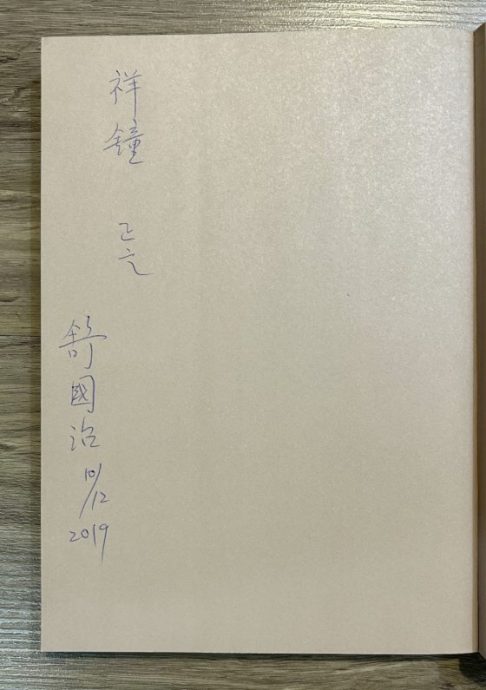 祥鐘 正之
舒國治 10/12 2019